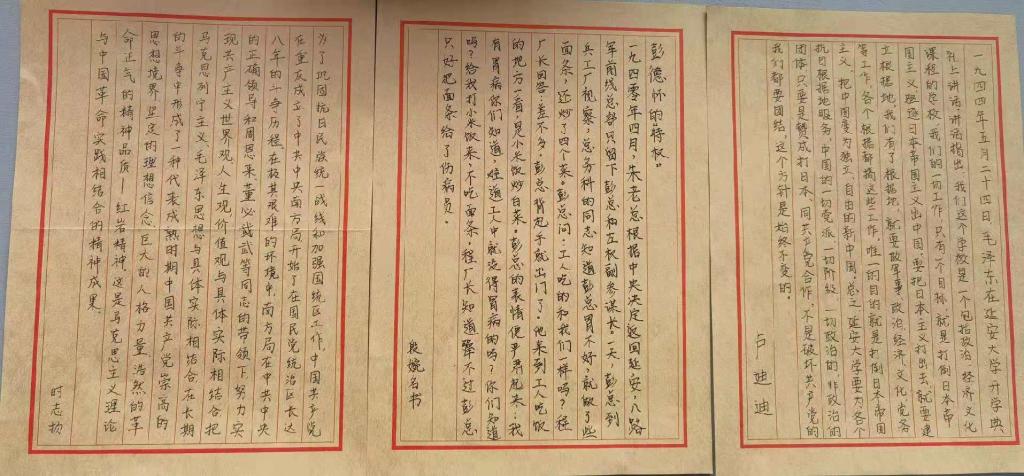 一九四四年五月二十四日毛泽东在延安大学开学典
礼上讲话。讲话指出，我们这个学校是一个包括政治、经济、文化
课程的学校，我们的一切工作，只有一个目标，就是打倒日本帝
国主义。要把日本帝国主义打出中国，要把日本主义打出去，就要建
立根据地，我们有了根据地，就要做军事、政治、经济、文化、党务
等工作，各个根据都搞这些工作，唯一的目的就是打倒日本帝国
主义，把中国变为独立、自由的新中国。总之，延安大学要为各个
抗日根据地服务，中国的一切党派，一切阶级，一切政治的、非政治的
团体，只要是赞成打日本、同共产党合作，不是破坏共产党的，
我们都要团结，这个方针是始终不变的。
卢迪迪
彭德怀的“特权”
一九四零年四月，朱老总根据中央决定返回延安，八路
军前线总部只留下彭总和左权副参谋长。一天，彭总到
兵工厂视察，总务科的同志知道彭总胃不好，就做了些
面条，还炒了四个菜。彭总问：工人吃的和我们一样吗？程
厂长回答：差不多。彭总背起手就出门了。他来到工人吃饭
的地方一看，是小米饭炒白菜。彭总的表情便严肃起来：我
有胃病你们知道，难道工人中就没得胃病的吗？你们知道
吗？给我打小米饭来，不吃面条。程厂长知道犟不过彭总，
只好把面条给了伤病员。
段婉名书
为了巩固抗日民族统一战线和加强国统区工作，中国共产党
在重庆成立了中共中央南方局，开始了在国民党统治区长达
八年的斗争历程。在极其艰难的环境中，南方局在中共中央
的正确领导和周恩来、董必武等同志的带领下，努力实
现共产主义世界观、人生观、价值观与具体实际相结合，把
马克思列宁主义、毛泽东思想与具体实际相结合，在长期
的斗争中形成了一种代表成熟时期中国共产党崇高的
思想境界、坚定的理想信念、巨大的人格力量、浩然的革
命正气的精神品质——红岩精神。这是马克思主义理论
与中国革命实践相结合的精神成果。
时志扬